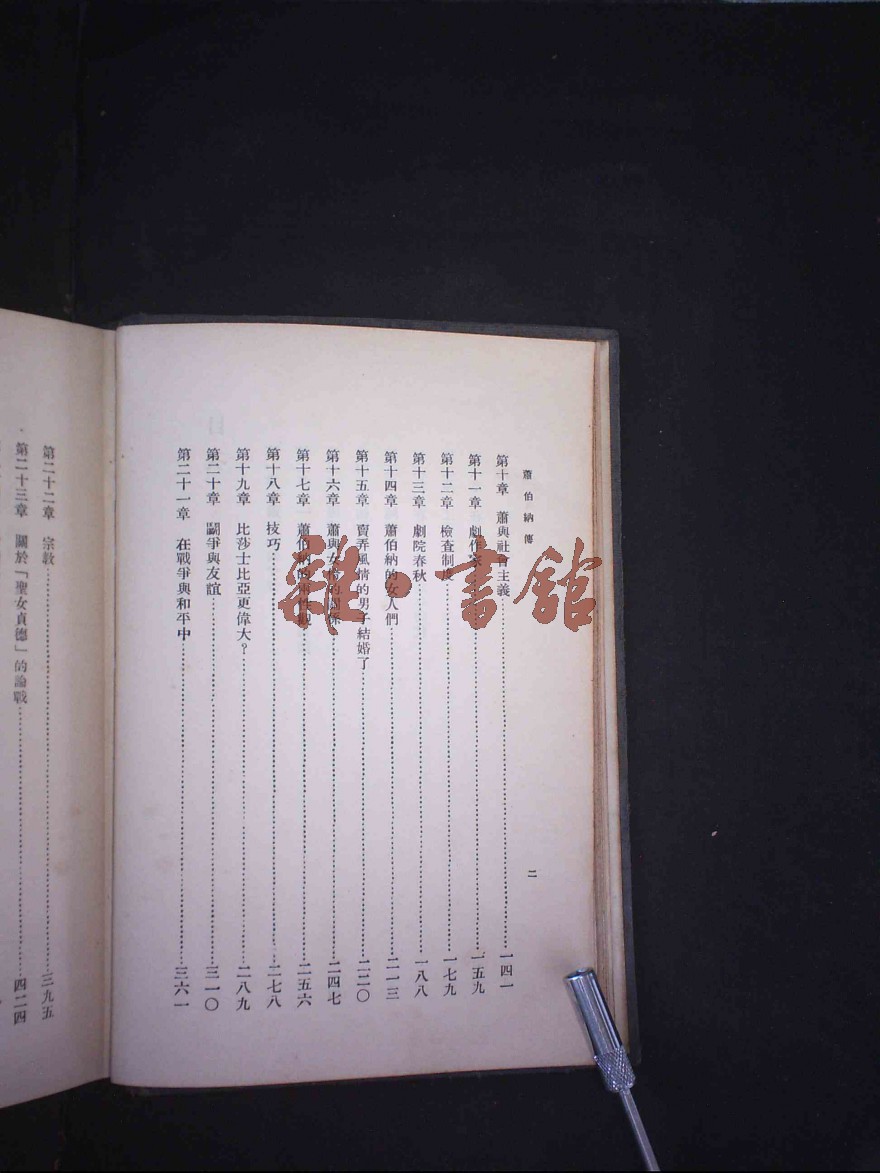 蕭伯納傳
二
第十章　蕭與社會主義……一四一
第十一章　劇作家……一五九
第十二章　檢查制……一七九
第十三章　劇院春秋……一八八
第十四章　蕭伯納的女人們……二一三
第十五章　賣弄風情的男子結婚了……二二〇
第十六章　蕭與女性的關係……二四七
第十七章　蕭伯納的兩性觀……二五六
第十八章　技巧……二七八
第十九章　比莎士比亞更偉大？……二八九
第二十章　鬭爭與友誼……三一〇
第二十一章　在戰爭與和平中……三六一
第二十二章　宗教……三九五
第二十三章　關於「聖女貞德」的論戰……四二四
雜·書館